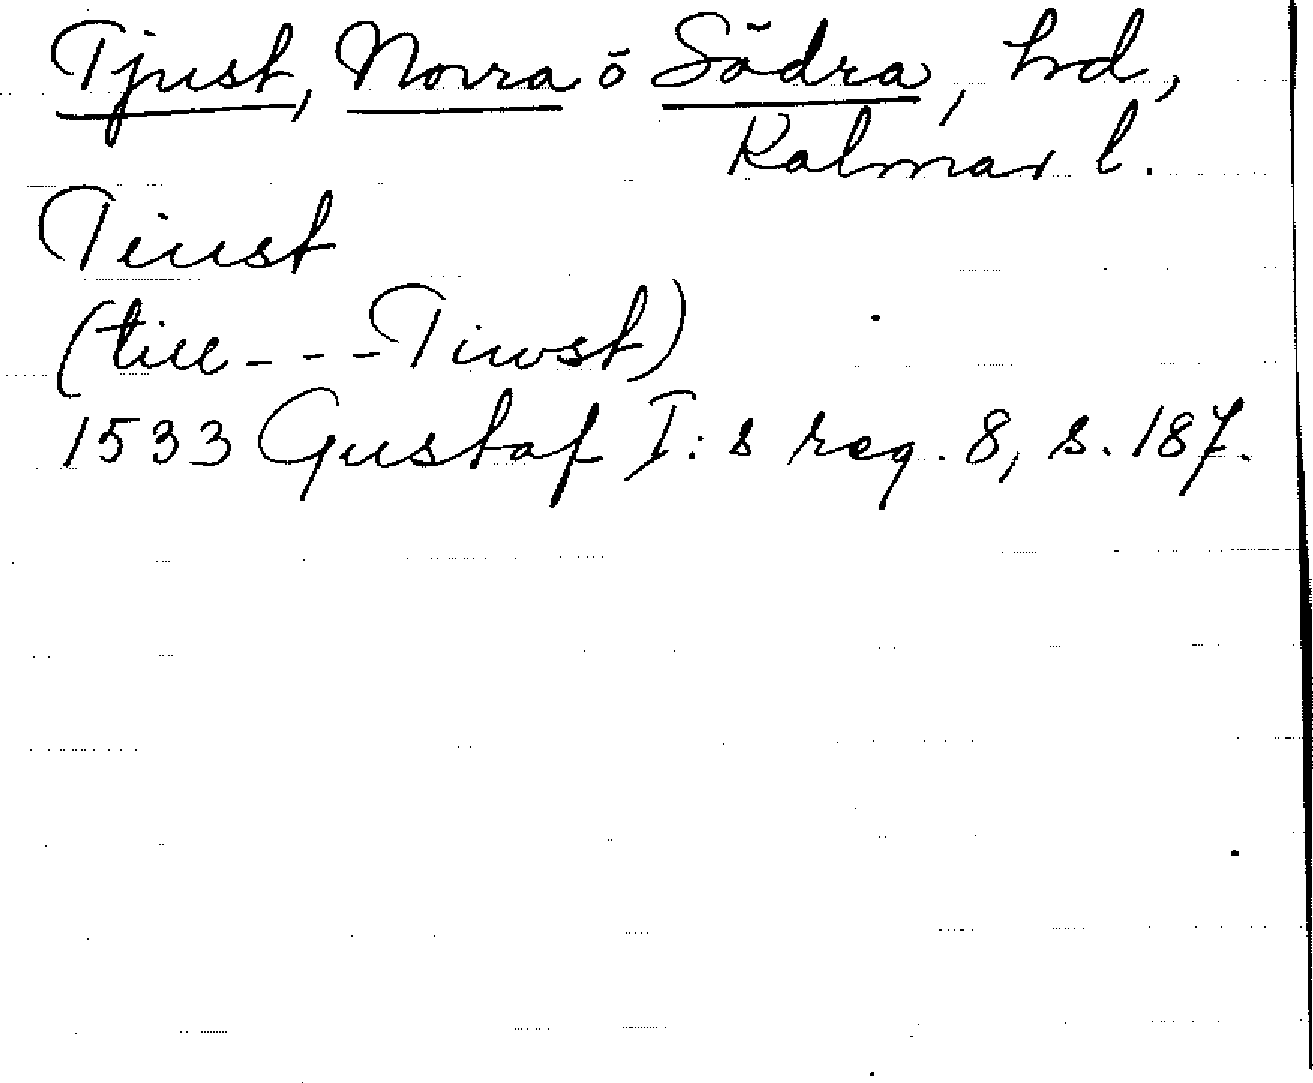 Tjust, Norra o Södra, hd,
Kalmar l.
Tiust
(till - - - Tiwst)
1533 Gustaf I:s reg. 8, s. 187.